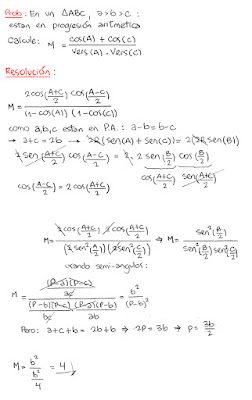 Prob: En un ΔABC, a>b>c:
estan en progresión aritmetica
calcule: M = (cos(A) + cos(C)) / (vers(A) . vers(C))
Resolución:
M = (2cos((A+C)/2) cos((A-C)/2)) / ((1-cos(A)) (1-cos(C)))
como a,b,c estan en P.A.: a-b=b-c
→ a+c = 2b → 2R(sen(A) + sen(C)) = 2(2R sen(B))
2 sen((A+C)/2) cos((A-C)/2) = 2. 2 sen(B/2) cos(B/2)
cos((A+C)/2) sen((A+C)/2)
cos((A-C)/2) = 2cos((A+C)/2)
M = (2cos((A+C)/2) 2cos((A+C)/2)) / ((2sen²(A/2))(2sen²(C/2))) ⇒ M = sen²(B/2) / (sen²(A/2) sen²(C/2))
usando semi-angulos:
M = ((P-a)(P-c) / ac) / ((P-b)(P-c)/bc (P-a)(P-b)/ab) = b²/(P-b)²
Pero: a+c+b = 2b+b → 2P = 3b → P = 3b/2
M = b² / (b²/4) = 4